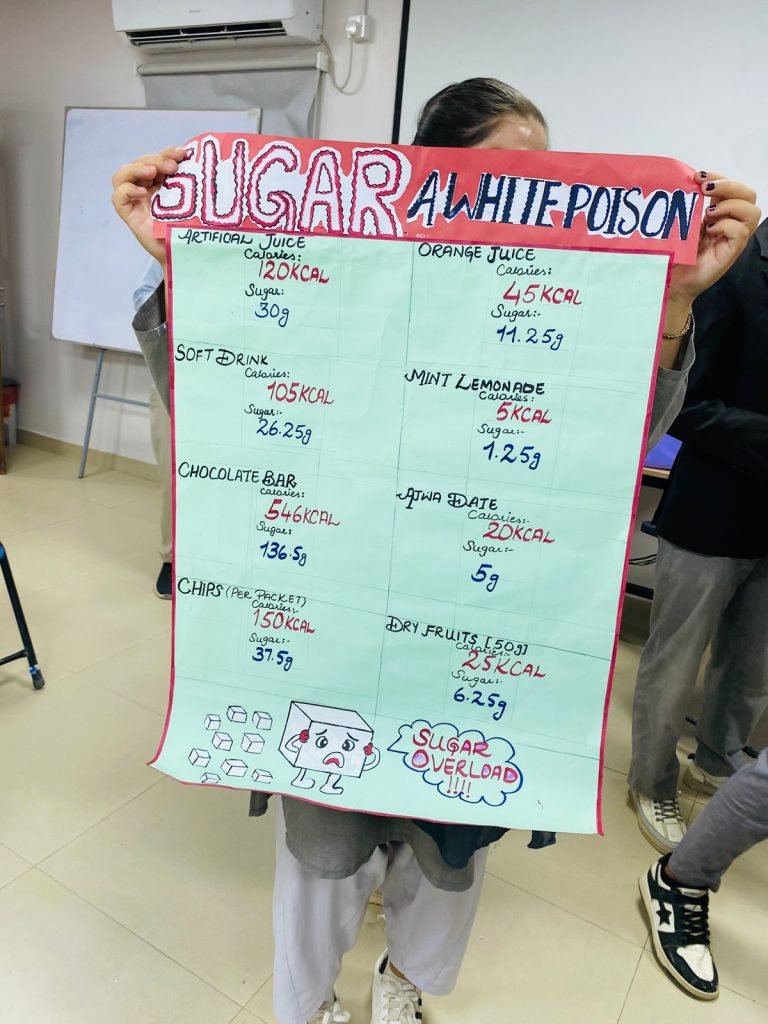 SUGAR A WHITE POISON
ARTIFICIAL JUICE
Calories:
120KCAL
Sugar:
30g
ORANGE JUICE
Calories:
45KCAL
Sugar:-
11.25g
SOFT DRINK
Calories:
105KCAL
Sugar:-
26.25g
MINT LEMONADE
Calories:
5KCAL
Sugar:-
1.25g
CHOCOLATE BAR
Calories:
546KCAL
Sugar:-
136.5g
AJWA DATE
Calories:-
20KCAL
Sugar:-
5g
CHIPS (PER PACKET)
Calories:-
150KCAL
Sugar:-
37.5g
DRY FRUITS [50g]
Calories:-
25KCAL
Sugar:-
6.25g
SUGAR
OVERLOAD
!!!!